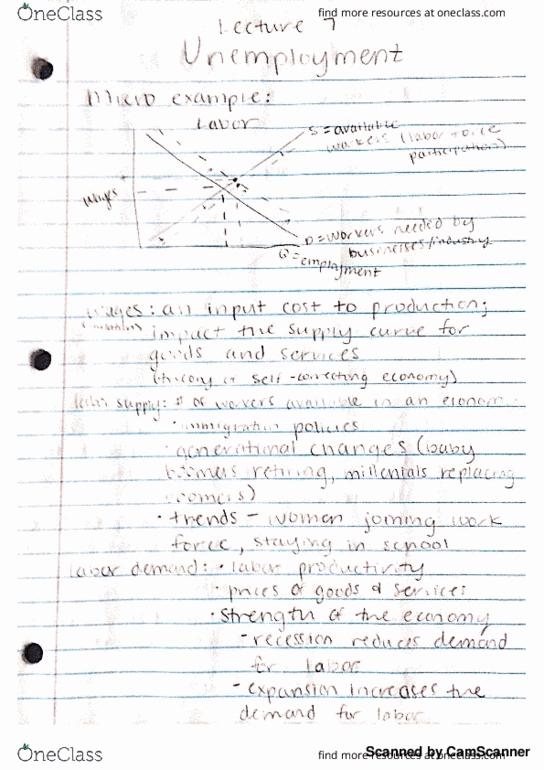 OneClass
find more resources at oneclass.com
Lecture 7
Unemployment
Micro example:
Labor
S = available
workers (labor force
participation)
Wages
D = workers needed by
businesses/industry
Q = employment
Wages: an input cost to production;
impact the supply curve for
goods and services
(theory of self-correcting economy)
labor supply: # of workers available in an econom
· immigration policies
· generational changes (baby
boomers retiring, millenials replacing
boomers)
· trends - women joining work
force, staying in school
Labor demand: · labor productivity
· prices of goods & services
· strength of the economy
- recession reduces demand
for labor
- expansion increases the
demand for labor
OneClass
find more resources at oneclass.com
Scanned by CamScanner